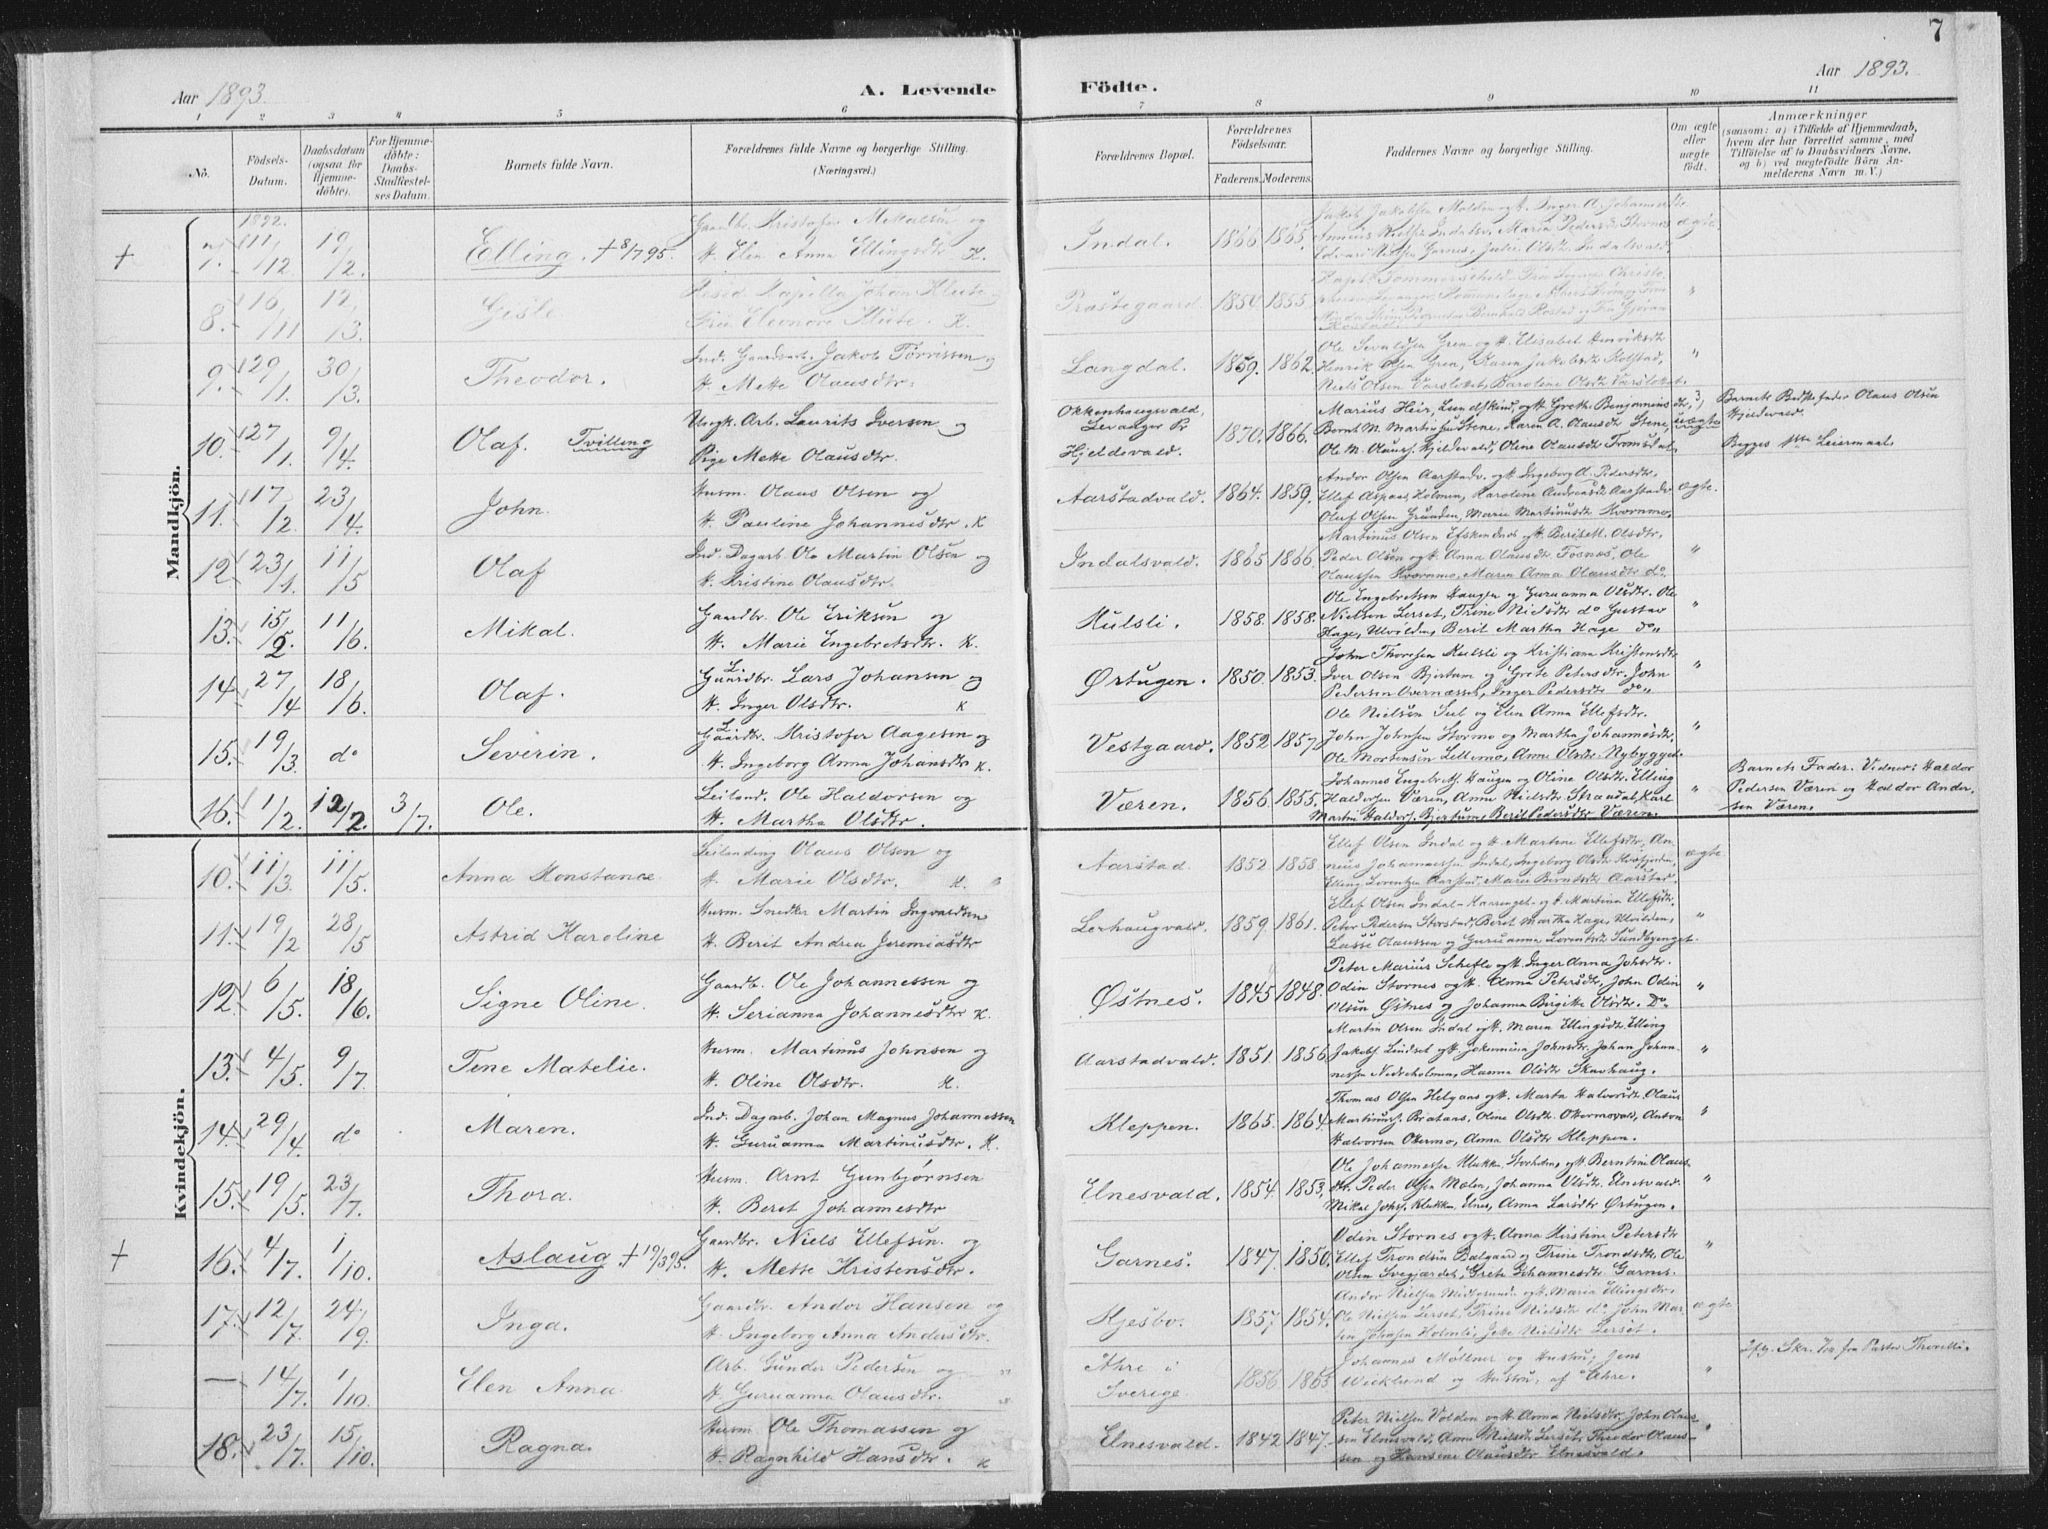 7
Aar 1893.
A. Levende
Födte.
Aar 1893.
1 2 3 4 5 6 7 8 9 10 11
No.
Födsels-
Datum.
Daabsdatum
(ogsaa for
Hjemme-
döbte).
For Hjemme-
döbte:
Daabs-
Stadfæstel-
ses Datum.
Barnets fulde Navn.
Forældrenes fulde Navne og borgerlige Stilling.
(Næringsvei.)
Forældrenes Bopæl.
Forældrenes
Födselsaar.
Faderens. Moderens.
Faddernes Navne og borgerlige Stilling.
Om ægte
eller
uægte
födt.
Anmærkninger
(saasom: a) i Tilfælde af Hjemmedaab,
hvem der har forrettet samme, med
Tilföielse af to Daabsvidners Navne,
og b) ved uægtefödte Börn An-
melderens Navn m. V.)
Mandkjön.
1892.
+ 7. 11/12 19/2. Elling. + 8/7 95. Gaardbr. Kristofer Mikalsen og
H. Elen Anna Ellingsdtr K. Indal. 1866 1865. ægte.
8. 16/11 12/3 Gisle. Johan Klüte
Frue Eleonore Klüte. K. Præstegaard. 1850 1855 "
9. 29/1. 30/3. Theodor. Ind. Gaardarb. Jakob Tørrissen og
H. Mette Olausdtr. Langdal. 1859. 1862. "
Ole Sevaldsen Gren og H. Elisabet Henriksdtr
Henrik Olsen Gren, Karen Jakobsdtr Kolstad,
Niels Olsen Varslotet, Karoline Olsdtr Varslotet.
10. 27/1. 9/4. Olaf. Tvilling Ungk. Arb. Laurits Iversen og
Pige Mette Olausdtr. Okkenhaugvald,
Levanger P.
Hjeldsvald. 1870. 1866. uægte
Barnets Bedstefader Olaus Olsen
Hjeldevald.
Begges 1ste Leiermaal.
11. 17/2 23/4. John. Husm. Olaus Olsen og
H. Pauline Johannesdtr. K Aarstadvald. 1864. 1859. ægte.
Andor Olsen Aarstadv. og H. Ingeborg A. Pedersdtr.
Ellef Aspaas, Holmen, Karoline Andreasdtr Aarstadv
Oluf Olsen Grunden, Marie Martinusdtr Kvernmo.
12. 23/4. 11/5 Olaf Ind. Dagarb. Ole Martin Olsen og
H. Kristine Olausdtr. Indalsvald. 1865 1866. "
Peder Olsen og H. Anna Olausdtr. Fosnæs, Ole
Olaussen Kvernmo, Maren Anna Olausdtr do.
13. 15/2 11/6. Mikal. Gaardbr. Ole Eriksen og
H. Marie Engebretsdtr. K. Hulsli. 1858. 1858. "
Ole Engebretsen Haugen og Guruanna Olsdtr. Ole
Nielsen Lerset, Trine Nielsdtr do Gustav
Hage, Ulvilden, Berit Martha Hage do.
14. 27/4 18/6. Olaf. Gaardbr. Lars Johansen og
H. Inger Olsdtr. K Ørtugen. 1850. 1853. "
John Thoresen Hulsli og Kristiana Kristensdtr
Iver Olsen Bjertum og Grete Petersdtr, John
Pedersen Overnesset, Inger Pedersdtr do.
15. 19/3. do Severin. Gaardbr. Kristofer Aagesen og
H. Ingeborg Anna Johansdtr K. Vestgaard. 1852 1857 "
Ole Nielsen Sul og Elen Anna Ellefsdtr.
John Johnsen Stormo og Martha Johannesdtr
Ole Mortensen Lillemo, Anne Olsdtr Nybygget
16. 1/2. 12/2. 3/7. Ole. Leiland. Ole Haldorsen og
H. Martha Olsdtr. Væren. 1856. 1855. "
Johannes Engebretsen Haugen og Oline Olsdtr, Elling
Haldorsen Væren, Anne Nielsdtr Straadal, Karl
Martin Haldors. Bjertum, Berit Pedersdtr Væren.
Barnets Fader. Vidner: Haldor
Pedersen Væren og Haldor Ander-
sen Væren.
Kvindekjön.
10. 11/3. 11/5. Anna Konstance. Leilending Olaus Olsen og
H. Marie Olsdtr. K. Aarstad. 1852 1858. ægte
Ellef Olsen Indal og H. Martine Ellefsdtr, An-
nius Johannessen Indal, Ingeborg Olsdtr
Elling Lorentzen Aarstad, Maren Berntsdtr Aarstad.
11. 19/2 28/5 Astrid Karoline Husm. Snedker Martin Ingvaldsen
H. Berit Andrea Jeremiasdtr Lerhaugvald. 1859 1861. "
Ellef Olsen Indal og H. Martina Ellefsdtr.
Peter Pedersen Storstad, Berit Martha Hage, Ulvilden,
Lasse Olaussen og Guruanna Lorentsdtr Sundbyenget.
12. 6/5. 18/6. Signe Oline. Gaardb. Ole Johannessen og
H. Serianna Johannesdtr K. Østnes. 1845 1848. "
Peter Marius Schefte og H. Inger Anna Johsdtr.
Odin Stornes og H. Anna Petersdtr, John Odin
Olsen Østnes og Johanna Birgitte Olsdtr. Do
13. 4/5. 9/7. Tine Matelie. Husm. Martinus Johnsen og
H. Oline Olsdtr. K. Aarstadvald. 1851. 1856 "
Martin Olsen Indal og H. Maren Ellingsdtr, Elling
Jakobs. Lindset og H. Johannina Johnsdtr. Johan Johan-
nessen Nedreholmen, Hanna Olsdtr Skavhaug.
14. 29/4. do Maren. Ind. Dagarb. Johan Magnus Johannessen
H. Guruanna Martinusdtr. K. Kleppen. 1865. 1864. "
Thomas Olsen Helgaas og H. Marta Halvorsdtr. Olaus
Martinus. Brataas, Oline Olsdtr. Okermovald, Anton
Halvorsen Okermo, Anna Olsdtr Kleppen.
15. 19/5. 23/7. Thora. Husm. Arnt Gunbjørnsen
H. Berit Johannesdtr Elnesvald. 1854. 1853. "
Ole Johannessen Klukken, Storholmen, og H. Berntine Olaus-
dtr. Peder Olsen Mælen, Johanna Olsdtr. Elnesvald.
Mikal Johs. Klukken, Elnes, Anna Larsdtr Ørtugen.
+ 16. 4/7. 1/10. Aslaug + 19/3 95. Gaardbr. Niels Ellefsen og
H. Mette Kristensdtr. Garnes. 1847. 1850. "
Odin Stornes og H. Anna Kirstine Petersdtr
Ellef Trondsen Balgaard og Trine Trondsdtr. Ole
Olsen Svegjærdet, Grete Johannesdtr Garnes.
17. 12/7. 24/9. Inga. Gaardbr. Andor Hansen og
H. Ingeborg Anna Andersdtr. Kjesbo. 1857 1854. ægte
Andor Nielsen Midtgrunden og H. Maria Ellingsdtr.
Ole Nielsen Lerset, Trine Nielsdtr do, John Mar-
— 14/7. 1/10. Elen Anna Arb. Gunder Pedersen og
H. Guruanna Olausdtr. Åhre i
Sverige 1856 1865 "
Johannes Möllner og Hustru, Jens
Wicklund og Hustru, af Åhre.
18. 23/7. 15/10. Ragna. Husm. Ole Thomassen og
H. Ragnhild Hansdtr. K Elnesvald. 1842 1847. "
Peter Nielsen Volden og H. Anna Nielsdtr, John Olaus-
sen Elnesvald, Anne Nielsdtr Lerset, Theodor Olaus-
sen og Hansine Olausdtr Elnesvald.